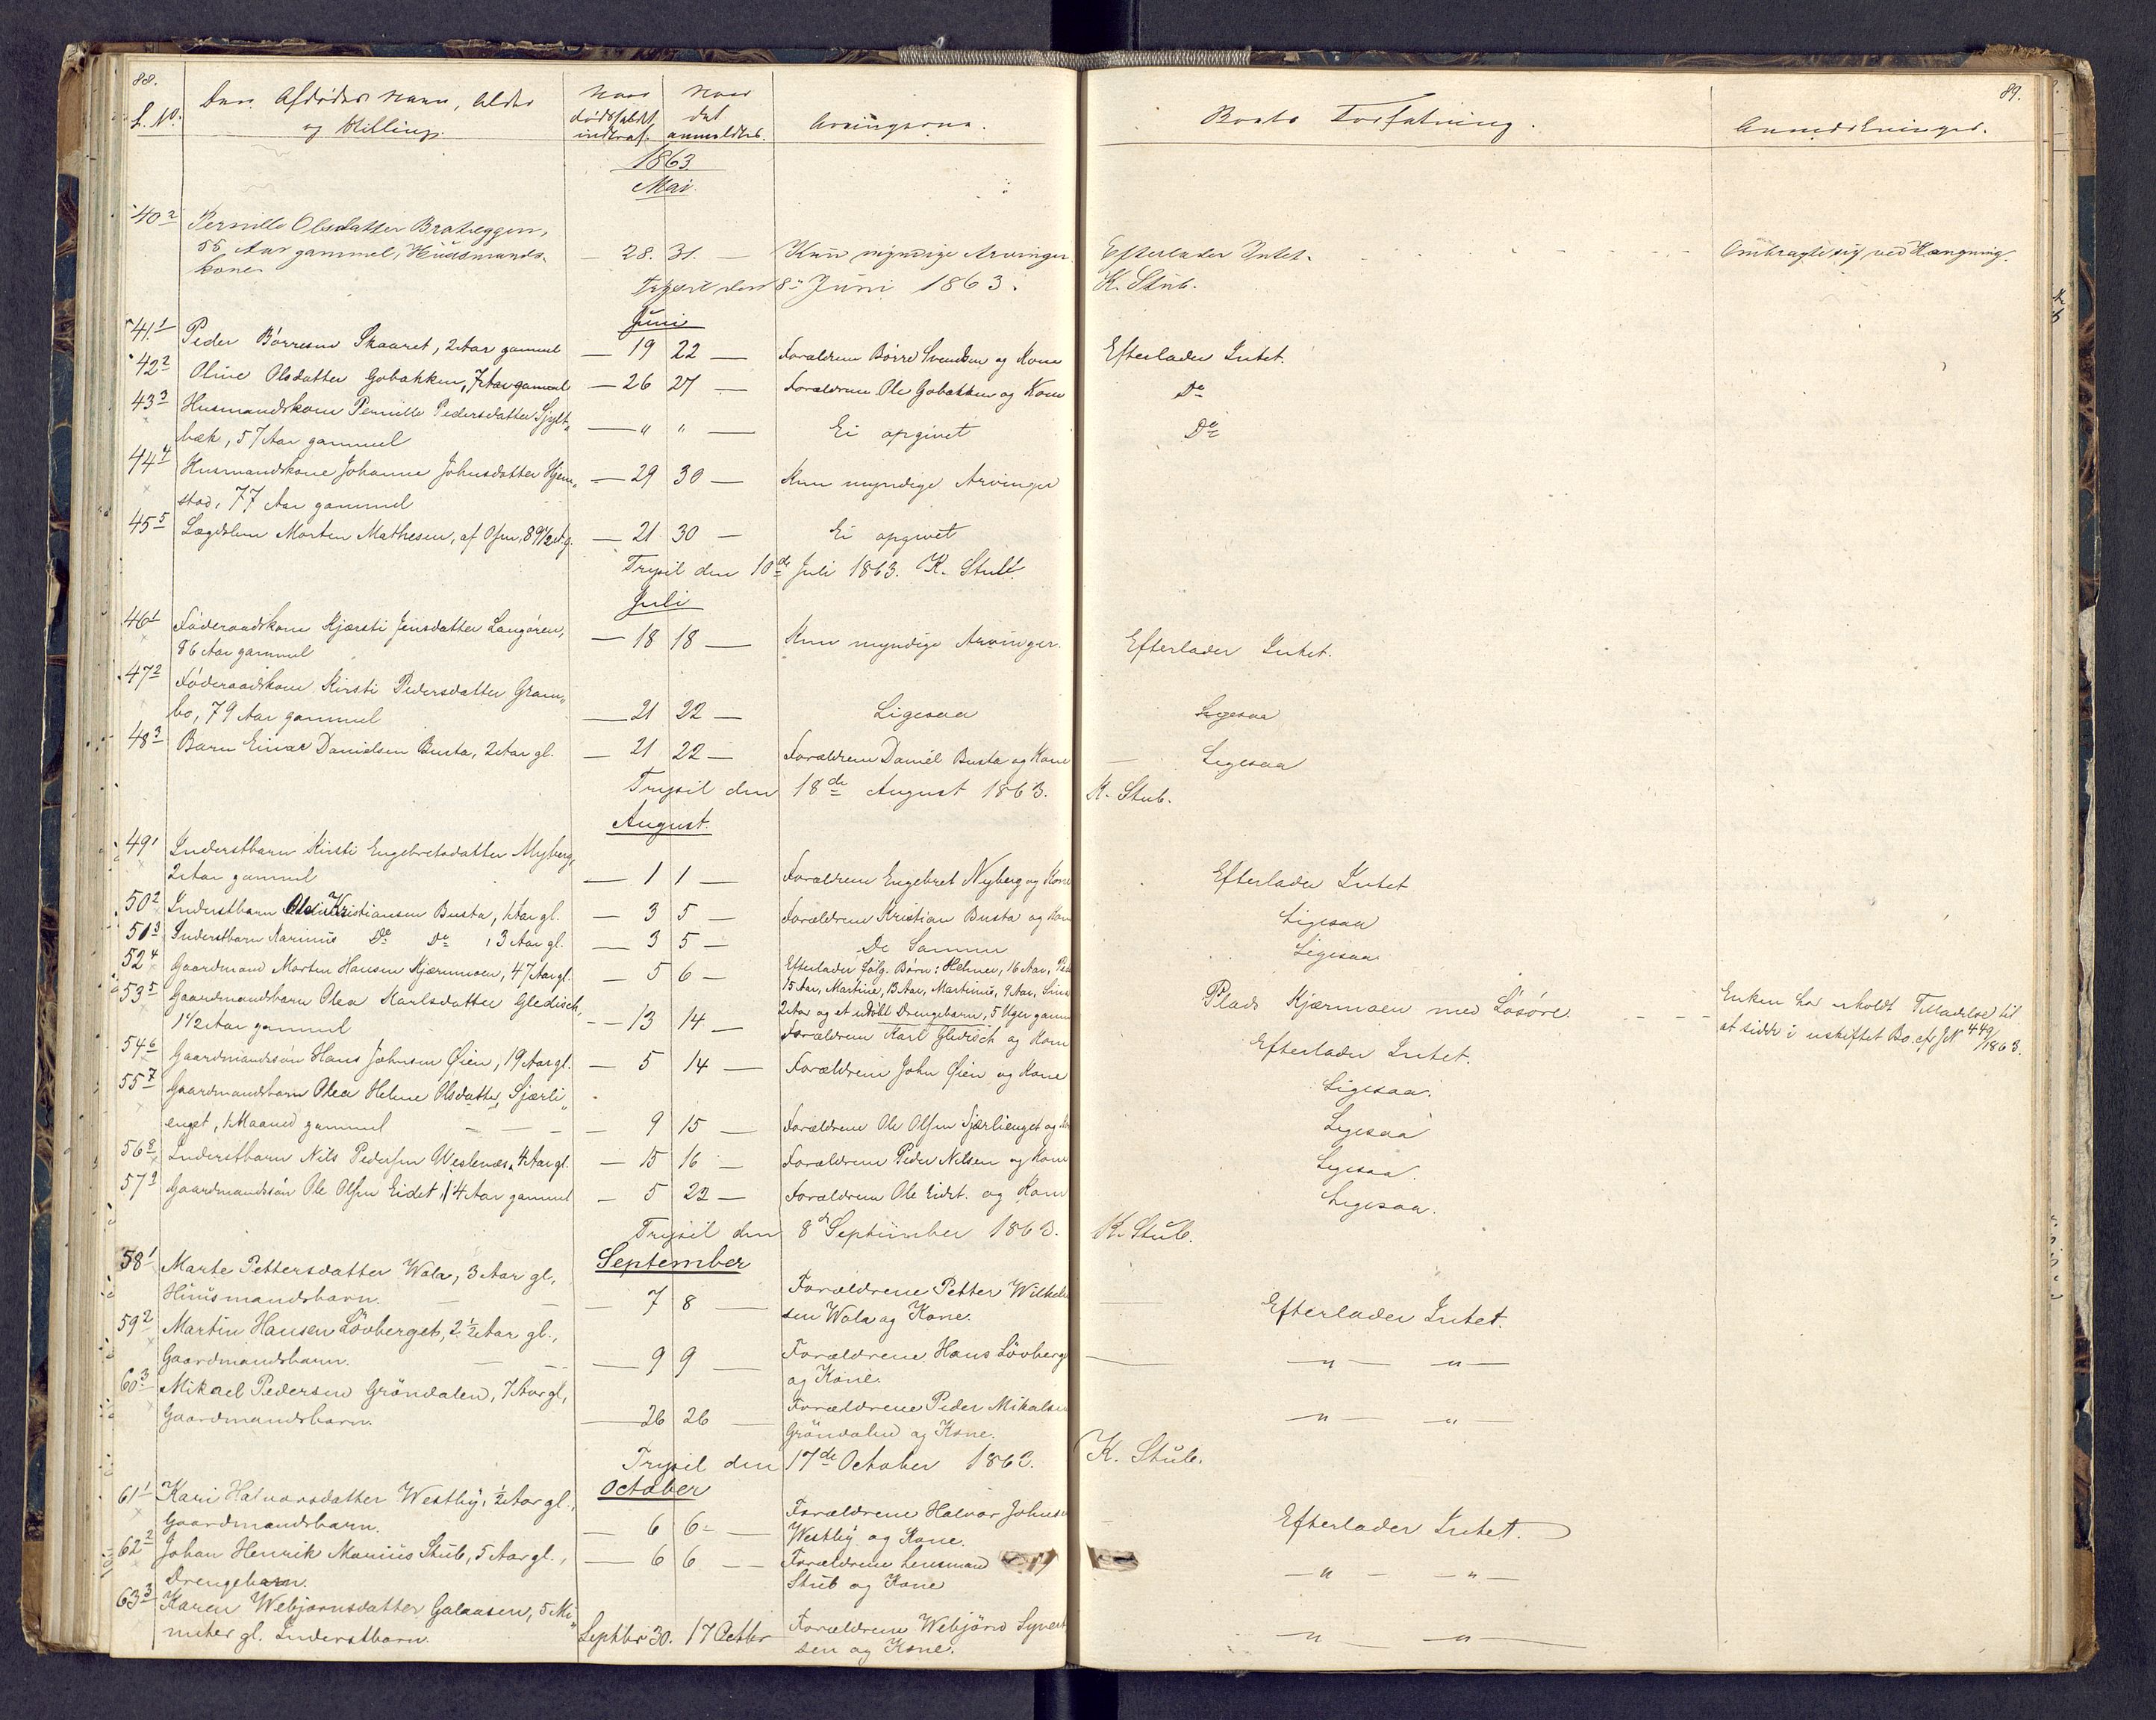 88.
L. No.
Den Afdødes Navn, Alder
og Stilling.
Naar
dødsfaldet
indtraf.
Naar
det
anmeldtes.
Arvingerne.
Boets Forfatning.
Anmærkninger.
89.
1863.
Mai.
40 2 Pernille Olsdatter Brateggen,
55 Aar gammel, Huusmands-
kone — 28. 31. — Kun myndige Arvinger. Efterlader Intet. Ombragte sig ved Hængning.
Trysil den 8de Juni 1863. K. Stub.
Juni
41 1 Peder Börresen Skaaret, 2 Aar gammel — 19 22 — Forældrene Börre Svendsen og Kone Efterlader Intet.
42 2 Oline Olsdatter Gobakken, 7 Aar gammel — 26 27 — Forældrene Ole Gobakken og Kone Do
43 3 Husmandskone Pernille Pedersdatter Sjylt„
bæk, 57 Aar gammel — " " — Ei opgivet Do
44 4 Husmandskone Johanne Johnsdatter Hjem„
stad, 77 Aar gammel — 29 30 — Kun myndige Arvinger
45 5 Lægdslem Morten Mathesen, af Osen, 89 1/2 A. g. — 21 30 — Ei opgivet
Trysil den 10de Juli 1863. K. Stub.
Juli
46 1 Föderaadskone Kjærsti Jensdatter Langören,
86 Aar gammel — 18 18 — Kun myndige Arvinger. Efterlader Intet.
47 2 Föderaadskone Kirsti Pedersdatter Gram„
bo, 79 Aar gammel — 21 22 — Ligesaa Ligesaa
48 3 Barn Einar Danielsen Busta, 2 Aar gl. — 21 22 — Forældrene Daniel Busta og Kone — Ligesaa
Trysil den 18de August 1863. K. Stub.
August.
49 1 Inderstbarn Kirsti Engebretsdatter Nyberg,
2 Aar gammel — 1 1 — Forældrene Engebret Nyberg og Kone Efterlader Intet
50 2 Inderstbarn Kristiansen Busta, 1 Aar gl. — 3 5 — Forældrene Kristian Busta og Kone Ligesaa
51 3 Inderstbarn Karinus Do Do, 3 Aar gl. — 3 5 — De Samme Ligesaa
52 4 Gaardmand Morten Hansen Kjærnmoen, 47 Aar gl. — 5 6 — Efterlader følg. Børn: Helmer, 16 Aar,
15 Aar, Martine, 13 Aar, Martinus, 9 Aar,
2 Aar og et udöbt Drengebarn, 5 Uger gamm Plads Kjærmoen med Lösöre. — — Enken har erholdt Tilladelse til
at sidde i uskiftet Bo. cf JN 449/1863.
53 5 Gaardmandsbarn Olea Karlsdatter Gledisch,
1 1/2 Aar gammel — 13 14 — Forældrene Karl Gledisch og Kone Efterlader Intet.
54 6 Gaardmandssön Hans Johnsen Øien, 19 Aar gl. — 5 14 — Forældrene John Øien og Kone Ligesaa.
55 7 Gaardmandsbarn Olea Helene Olsdatter Sjærli„
enget, 1 Maaned gammel — — — 9 15 — Forældrene Ole Olsen Sjærlienget og Ligesaa
56 8 Inderstbarn Nils Pedersen Westenæs, 4 Aar gl. — 15 16 — Forældrene Peder Nilsen og Kone Ligesaa.
57 9 Gaardmandssön Ole Olsen Eidet, 14 Aar gammel — 5 22 — Forældrene Ole Eidet. og Kone Ligesaa.
Trysil den 8de September 1863. K. Stub.
September
58 1 Marte Pettersdatter Wala, 3 Aar gl.,
Huusmandsbarn. — 7 8 — Forældrene Petter Wilhelm
sen Wala og Kone. — Efterlader Intet.
59 2 Martin Hansen Lövberget, 2 1/2 Aar gl.,
Gaardmandsbarn. — 9 9 — Forældrene Hans Lövberg
og Kone. — " — " —
60 3 Mikael Pedersen Gröndalen, 7 Aar gl,
Gaardmandsbarn. — 26 26 — Forældrene Peder Mikalsen
Gröndalen og Kone. — " — " —
Trysil den 17de October 1863. K. Stub.
October
61 1 Kari Halvorsdatter Westby, 1/2 Aar gl.,
Gaardmandsbarn. — 6 6 — Forældrene Halvor Johnse
Westby og Kone. Efterlader Intet.
62 2 Johan Henrik Marius Stub, 5 Aar gl.,
Drengebarn. — 6 6 — Forældrene Lensmand
Stub og Kone — " — " —
63 3 Karen Webjörnsdatter Galaasen, 5 Mi„
nuter gl. Inderstbarn. Septbr 30. 17 Octbr Forældrene Webjörn Syvert
sen og Kone. — " — " —